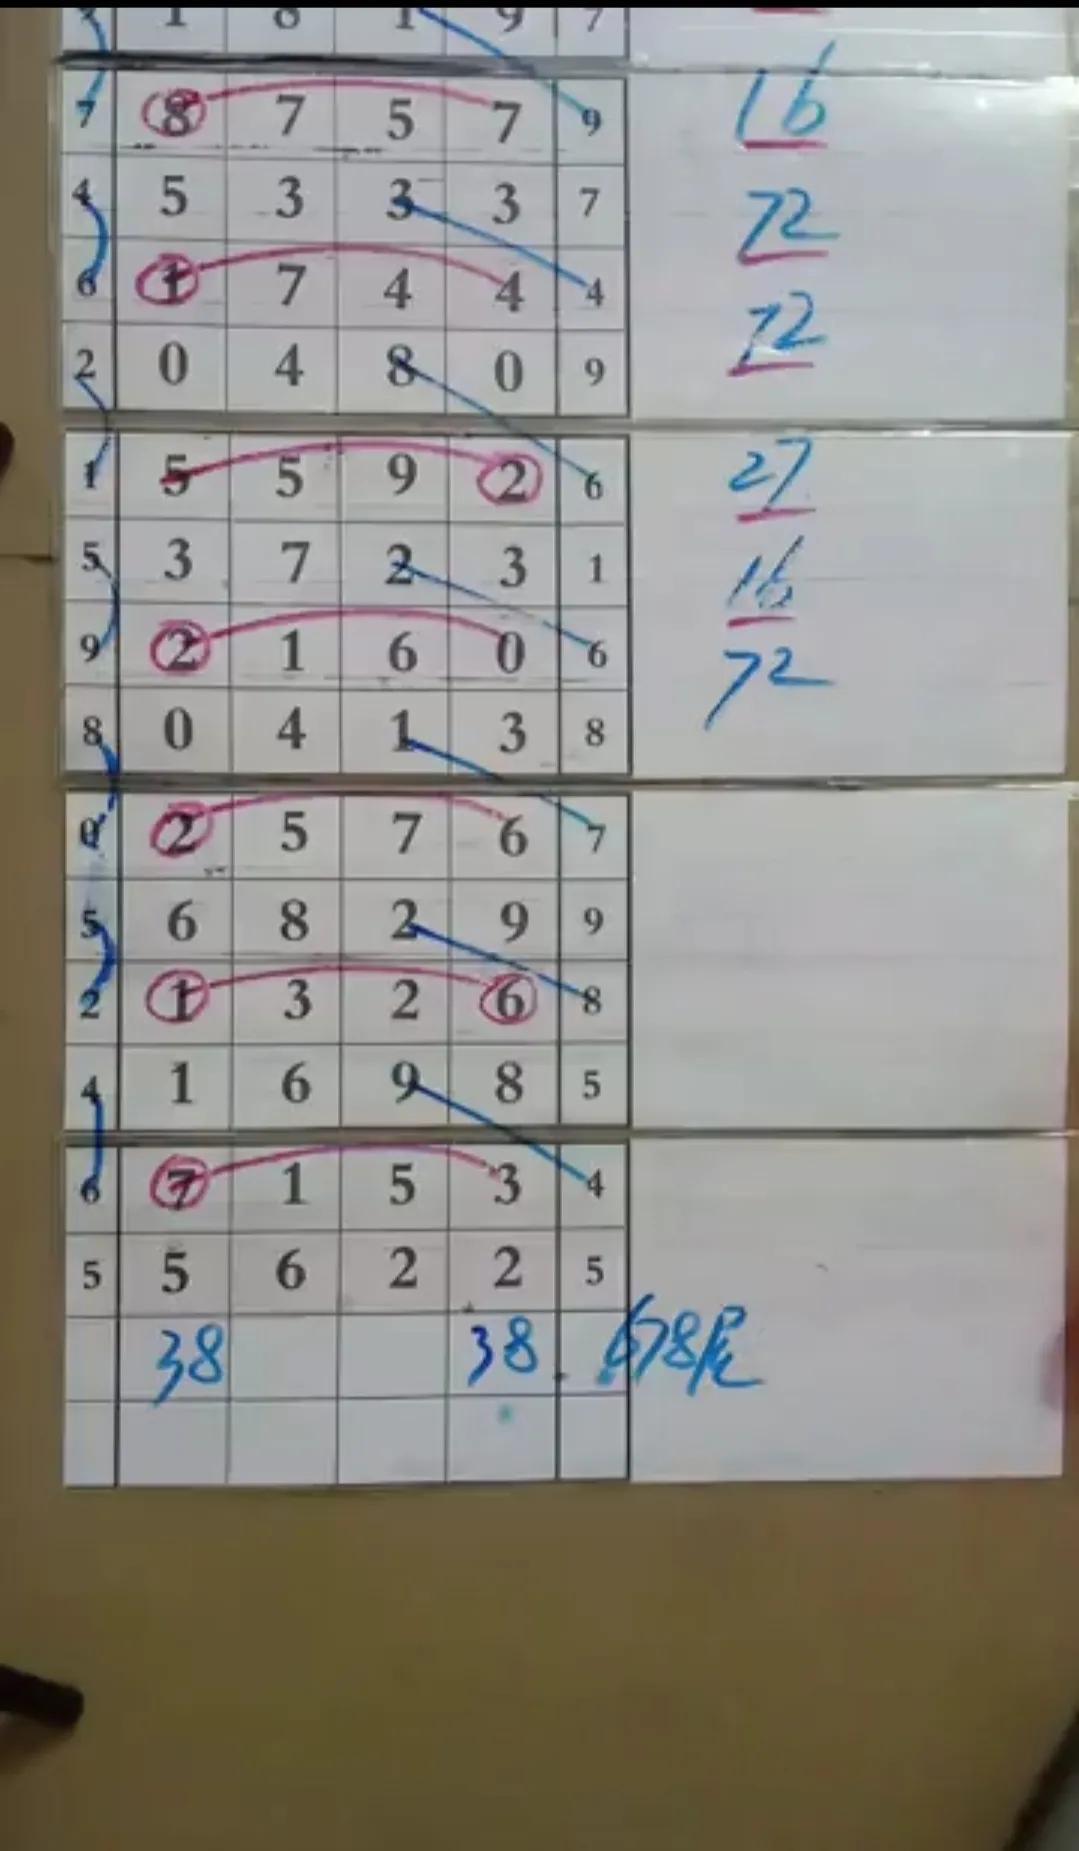 1 8 1 9 7
7 8 7 5 7 9 16
4 5 3 3 3 7 72
6 1 7 4 4 4 72
2 0 4 8 0 9
1 5 5 9 2 6 27
5 3 7 2 3 1 16
9 2 1 6 0 6 72
8 0 4 1 3 8
0 2 5 7 6 7
5 6 8 2 9 9
2 1 3 2 6 8
4 1 6 9 8 5
6 7 1 5 3 4
5 5 6 2 2 5
38 38 678尾